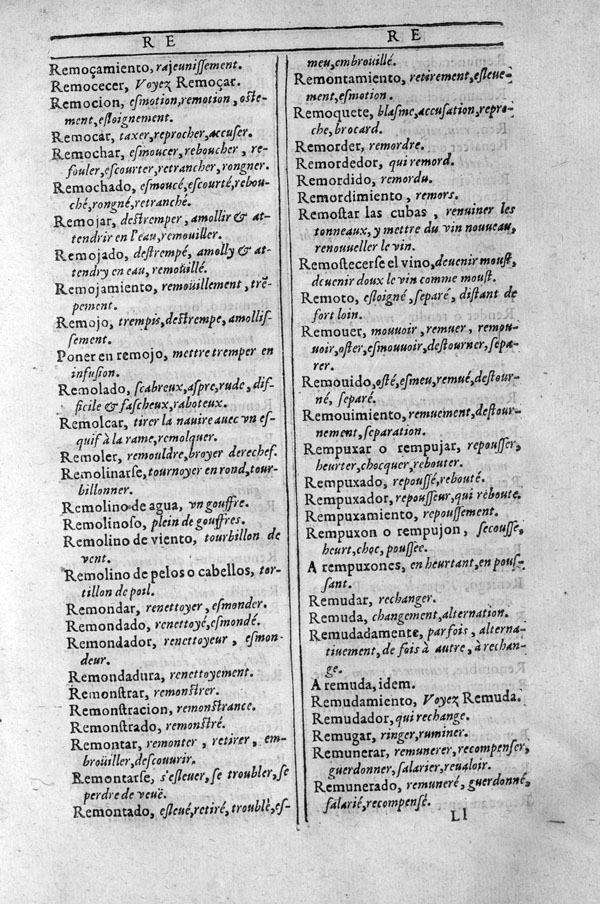 R E
Remoçamiento, rajeunissement.
Remocecer, Voyez Remoçar.
Remocion, eſmotion, remotion, oste-
ment, eſloignement.
Remocar, taxer, reprocher, accuſer.
Remochar, eſmoucer, reboucher, re-
fouler, eſcourter, retrancher, rongner.
Remochado, eſmoucé, eſcourté, rebou-
ché, rongné, retranché.
Remojar, destremper, amollir & at-
tendrir en l'eau, remouiller.
Remojado, destrempé, amolly & at-
tendry en eau, remoüillé.
Remojamiento, remoüillement, trẽ-
pement.
Remojo, trempis, destrempe, amolliſ-
ſement.
Poner en remojo, mettre tremper en
infusion.
Remolado, ſcabreux, aſpre, rude, diſ-
ficile & faſcheux, raboteux.
Remolcar, tirer la nauire auec vn eſ-
quif à la rame, remolquer.
Remoler, remouldre, broyer derechef.
Remolinarſe, tournoyer en rond, tour-
billonner.
Remolino de agua, vn gouffre.
Remolinoſo, plein de gouffres.
Remolino de viento, tourbillon de
vent.
Remolino de pelos o cabellos, tor-
tillon de poil.
Remondar, renettoyer, eſmonder.
Remondado, renettoyé, eſmondé.
Remondador, renettoyeur, eſmon-
deur.
Remondadura, renettoyement.
Remonſtrar, remonſtrer.
Remonſtracion, remonſtrance.
Remonſtrado, remonſtré.
Remontar, remonter, retirer, em-
broüiller, deſcourir.
Remontarſe, s'eſleuer, ſe troubler, ſe
perdre de veuë.
Remontado, eſleué, retiré, troublé, eſ-
R E
meu, embrouillé.
Remontamiento, retirement, eſleue-
ment, eſmotion.
Remoquete, blaſme, accuſation, repro-
che, brocard.
Remorder, remordre.
Remordedor, qui remord.
Remordido, remordu.
Remordimiento, remors.
Remoſtar las cubas, renuiner les
tonneaux, y mettre du vin nouueau,
renouueller le vin.
Remoſtecerſe el vino, deuenir mouſt,
deuenir doux le vin comme mouſt.
Remoto, eſloigné, ſeparé, diſtant de
fort loin.
Remouer, mouuoir, remuer, rempu-
uoir, oſter, eſmouuoir, deſtourner, ſepa-
rer.
Remouido, oſté, eſmeu, remué, deſtour-
né, ſeparé.
Remouimiento, remuement, deſtour-
nement, ſeparation.
Rempuxar o rempujar, repouſſer,
heurter, chocquer, rebouter.
Rempuxado, repouſſé, rebouté.
Rempuxador, repouſſeur, qui reboute.
Rempuxamiento, repouſſement.
Rempuxon o rempujon, ſecouſſe,
heurt, choc, pouſſee.
A rempuxones, en heurtant, en pouſ-
ſant.
Remudar, rechanger.
Remuda, changement, alternation.
Remudadamente, par fois, alterna-
tiuement, de fois à autre, à rechan-
ge.
A remuda, idem.
Remudamiento, Voyez Remuda.
Remudador, qui rechange.
Remugar, ringer, ruminer.
Remunerar, remunerer, recompenſer,
guerdonner, ſalarier, reualoir.
Remunerado, remuneré, guerdonné,
ſalarié, recompenſé.
Ll